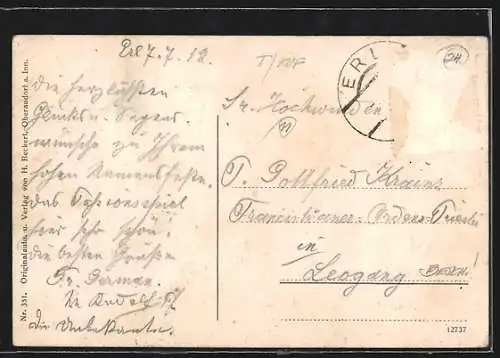 Erl 7.7.12.
Die herzlichsten
Glücks u. Segens-
wünsche zu Ihrem
hohen Namensfeste.
Das Passionsspiel
hier sehr schön!
Die besten Grüße
Fr. German
die Unbekannte.
ERL
Sr. Hochwürden
P. Gottfried Krainz
Franziskaner-Ordens-Priester
in
Leogang
Nr. 351. Originalaufn. u. Verlag von H. Reckerl, Oberaudorf a. Inn.
12737